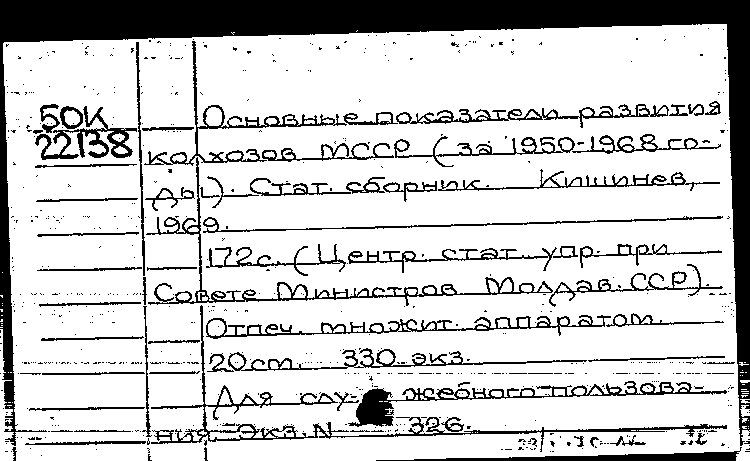 50К
22138
Основные показатели развития
колхозов МССР (за 1950-1968 го-
ды). Стат. сборник. Кишинев,
1969.
172с. (Центр. стат. упр. при
Совете Министров Молдав. ССР).
Отпеч. множит. аппаратом.
20см. 330 экз.
Для слу- жебного пользова-
ния. Экз. N 326.